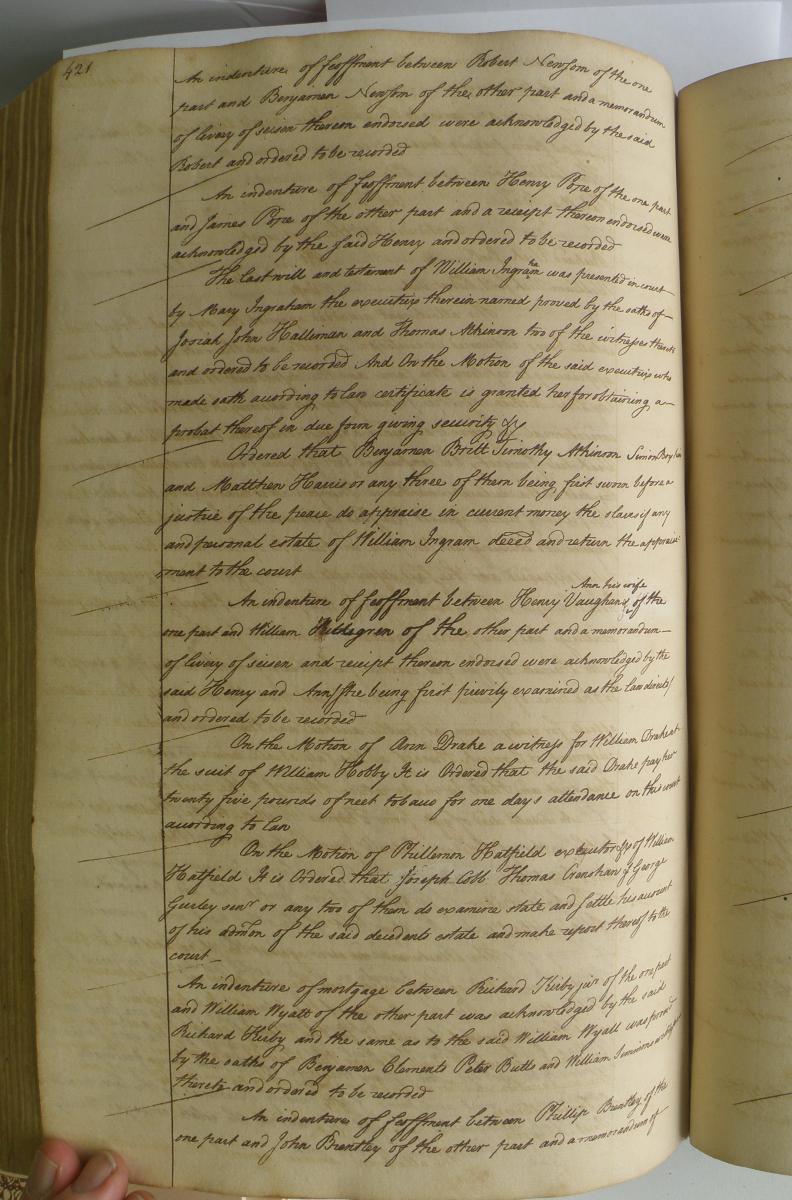 421
An indenture of feoffment between Robert Newsom of the one
part and Benjamen Newsom of the other part and a memorandum
of livery of seisen thereon endorsed were acknowledged by the said
Robert and ordered to be recorded
An indenture of feoffment between Henry Pope of the one part
and James Pope of the other part and a receipt thereon endorsed were
acknowledged by the said Henry and ordered to be recorded
The last will and testament of William Ingraham was presented in court
by Mary Ingraham the executrix therein named proved by the oaths of
Josiah John Halleman and Thomas Atkinson two of the witnesses thereto
and ordered to be recorded And On the Motion of the said executrix who
made oath according to law certificate is granted her for obtaining a
probat thereof in due form giving security &c
Ordered that Benjamen Britt Timothy Atkinson Simon
and Matthew Harris or any three of them being first sworn before a
justice of the peace do appraise in current money the slaves if any
and personal estate of William Ingram deced and return the appraise
ment to the court
An indenture of feoffment between Henry Vaughan & Ann his wife of the
one part and William of the other part and a memorandum
of livery of seisen and receipt thereon endorsed were acknowledged by the
said Henry and Ann (she being first privily examined as the law directs)
and ordered to be recorded
On the Motion of Ann Drake a witness for William Drake at
the suit of William Hobby It is Ordered that the said Drake pay her
twenty five pounds of neet tobacco for one days attendance on this court
according to law
On the Motion of Phillemon Hatfield executor &c of William
Hatfield It is Ordered that Joseph Cobb Thomas Crenshaw & George
Gurley senr or any two of them do examine state and settle his account
of his admon of the said decedents estate and make report thereof to the
court
An indenture of mortgage between Richard Kirby junr of the one part
and William Wyatt of the other part was acknowledged by the said
Richard Kirby and the same as to the said William Wyatt was proved
by the oaths of Benjamen Clements Peter Butts and William Simmons
thereto and ordered to be recorded
An indenture of feoffment between Phillip Brantley of the
one part and John Brantley of the other part and a memorandum of